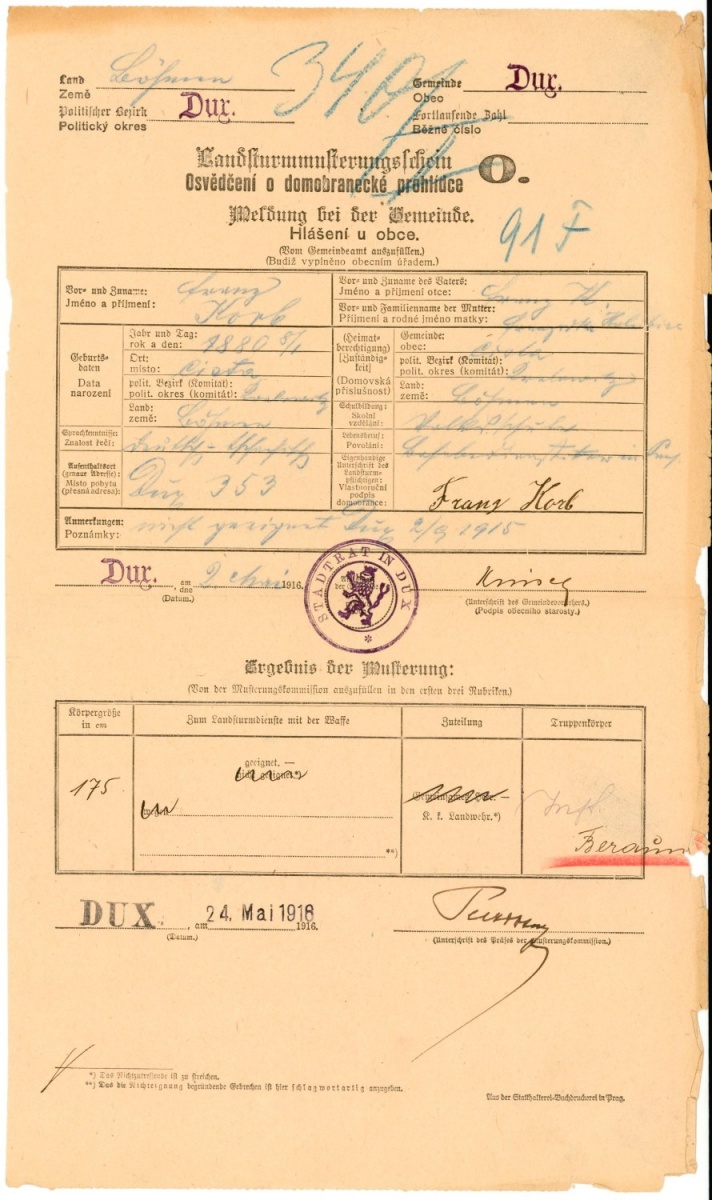 Land Böhmen
Země
Politischer Bezirk Dux.
Politický okres
Gemeinde Dux.
Obec
Fortlaufende Zahl
Běžné číslo
Landsturmmusterungsschein
Osvědčení o domobranecké prohlídce
O.
Meldung bei der Gemeinde.
Hlášení u obce.
91 F
(Vom Gemeindeamt auszufüllen.)
(Budiž vyplněno obecním úřadem.)
Vor- und Zuname: Franz
Jméno a příjmení: Korb
Vor- und Zuname des Vaters: Franz K.
Jméno a příjmení otce:
Vor- und Familienname der Mutter:
Příjmení a rodné jméno matky:
Geburtsdaten
Data narození
Jahr und Tag:
rok a den: 1880 5/1
Ort:
místo: Cista
polit. Bezirk (Komitát):
polit. okres (komitát):
Land:
země: Böhmen
(Heimatberechtigung)
[Zuständigkeit]
(Domovská příslušnost)
Gemeinde:
obec: Cista
polit. Bezirk (Komitát):
polit. okres (komitát):
Land:
země: Böhmen
Sprachkenntnisse:
Znalost řečí: deutsch
Schulbildung:
Školní vzdělání: Volksschule
Lebensberuf:
Povolání:
Aufenthaltsort
(genaue Adresse):
Místo pobytu
(přesná adresa):
Dux 353
Eigenhändige
Unterschrift des
Landsturmpflichtigen:
Vlastnoruční
podpis
domobrance:
Franz Korb
Anmerkungen: nicht geeignet Dux 2/9 1915
Poznámky:
Dux. am 9. Mai 1916.
dne
(Datum.)
STADTRAT IN DUX
(Unterschrift des Gemeindevorstehers.)
(Podpis obecního starosty.)
Ergebnis der Musterung:
(Von der Musterungskommission auszufüllen in den ersten drei Rubriken.)
Körpergröße
in cm
Zum Landsturmdienste mit der Waffe
Zuteilung
Truppenkörper
175
geeignet. —
nicht geeignet*)
wegen
**)
K. k. Landwehr.*)
Inf.
Beraun
DUX. am 24. Mai 1916 1916.
(Datum.)
(Unterschrift des Präses der Musterungskommission.)
*) Das Nichtzutreffende ist zu streichen.
**) Das die Nichteignung begründende Gebrechen ist hier schlagwortartig anzugeben.
Aus der Statthalterei-Buchdruckerei in Prag.